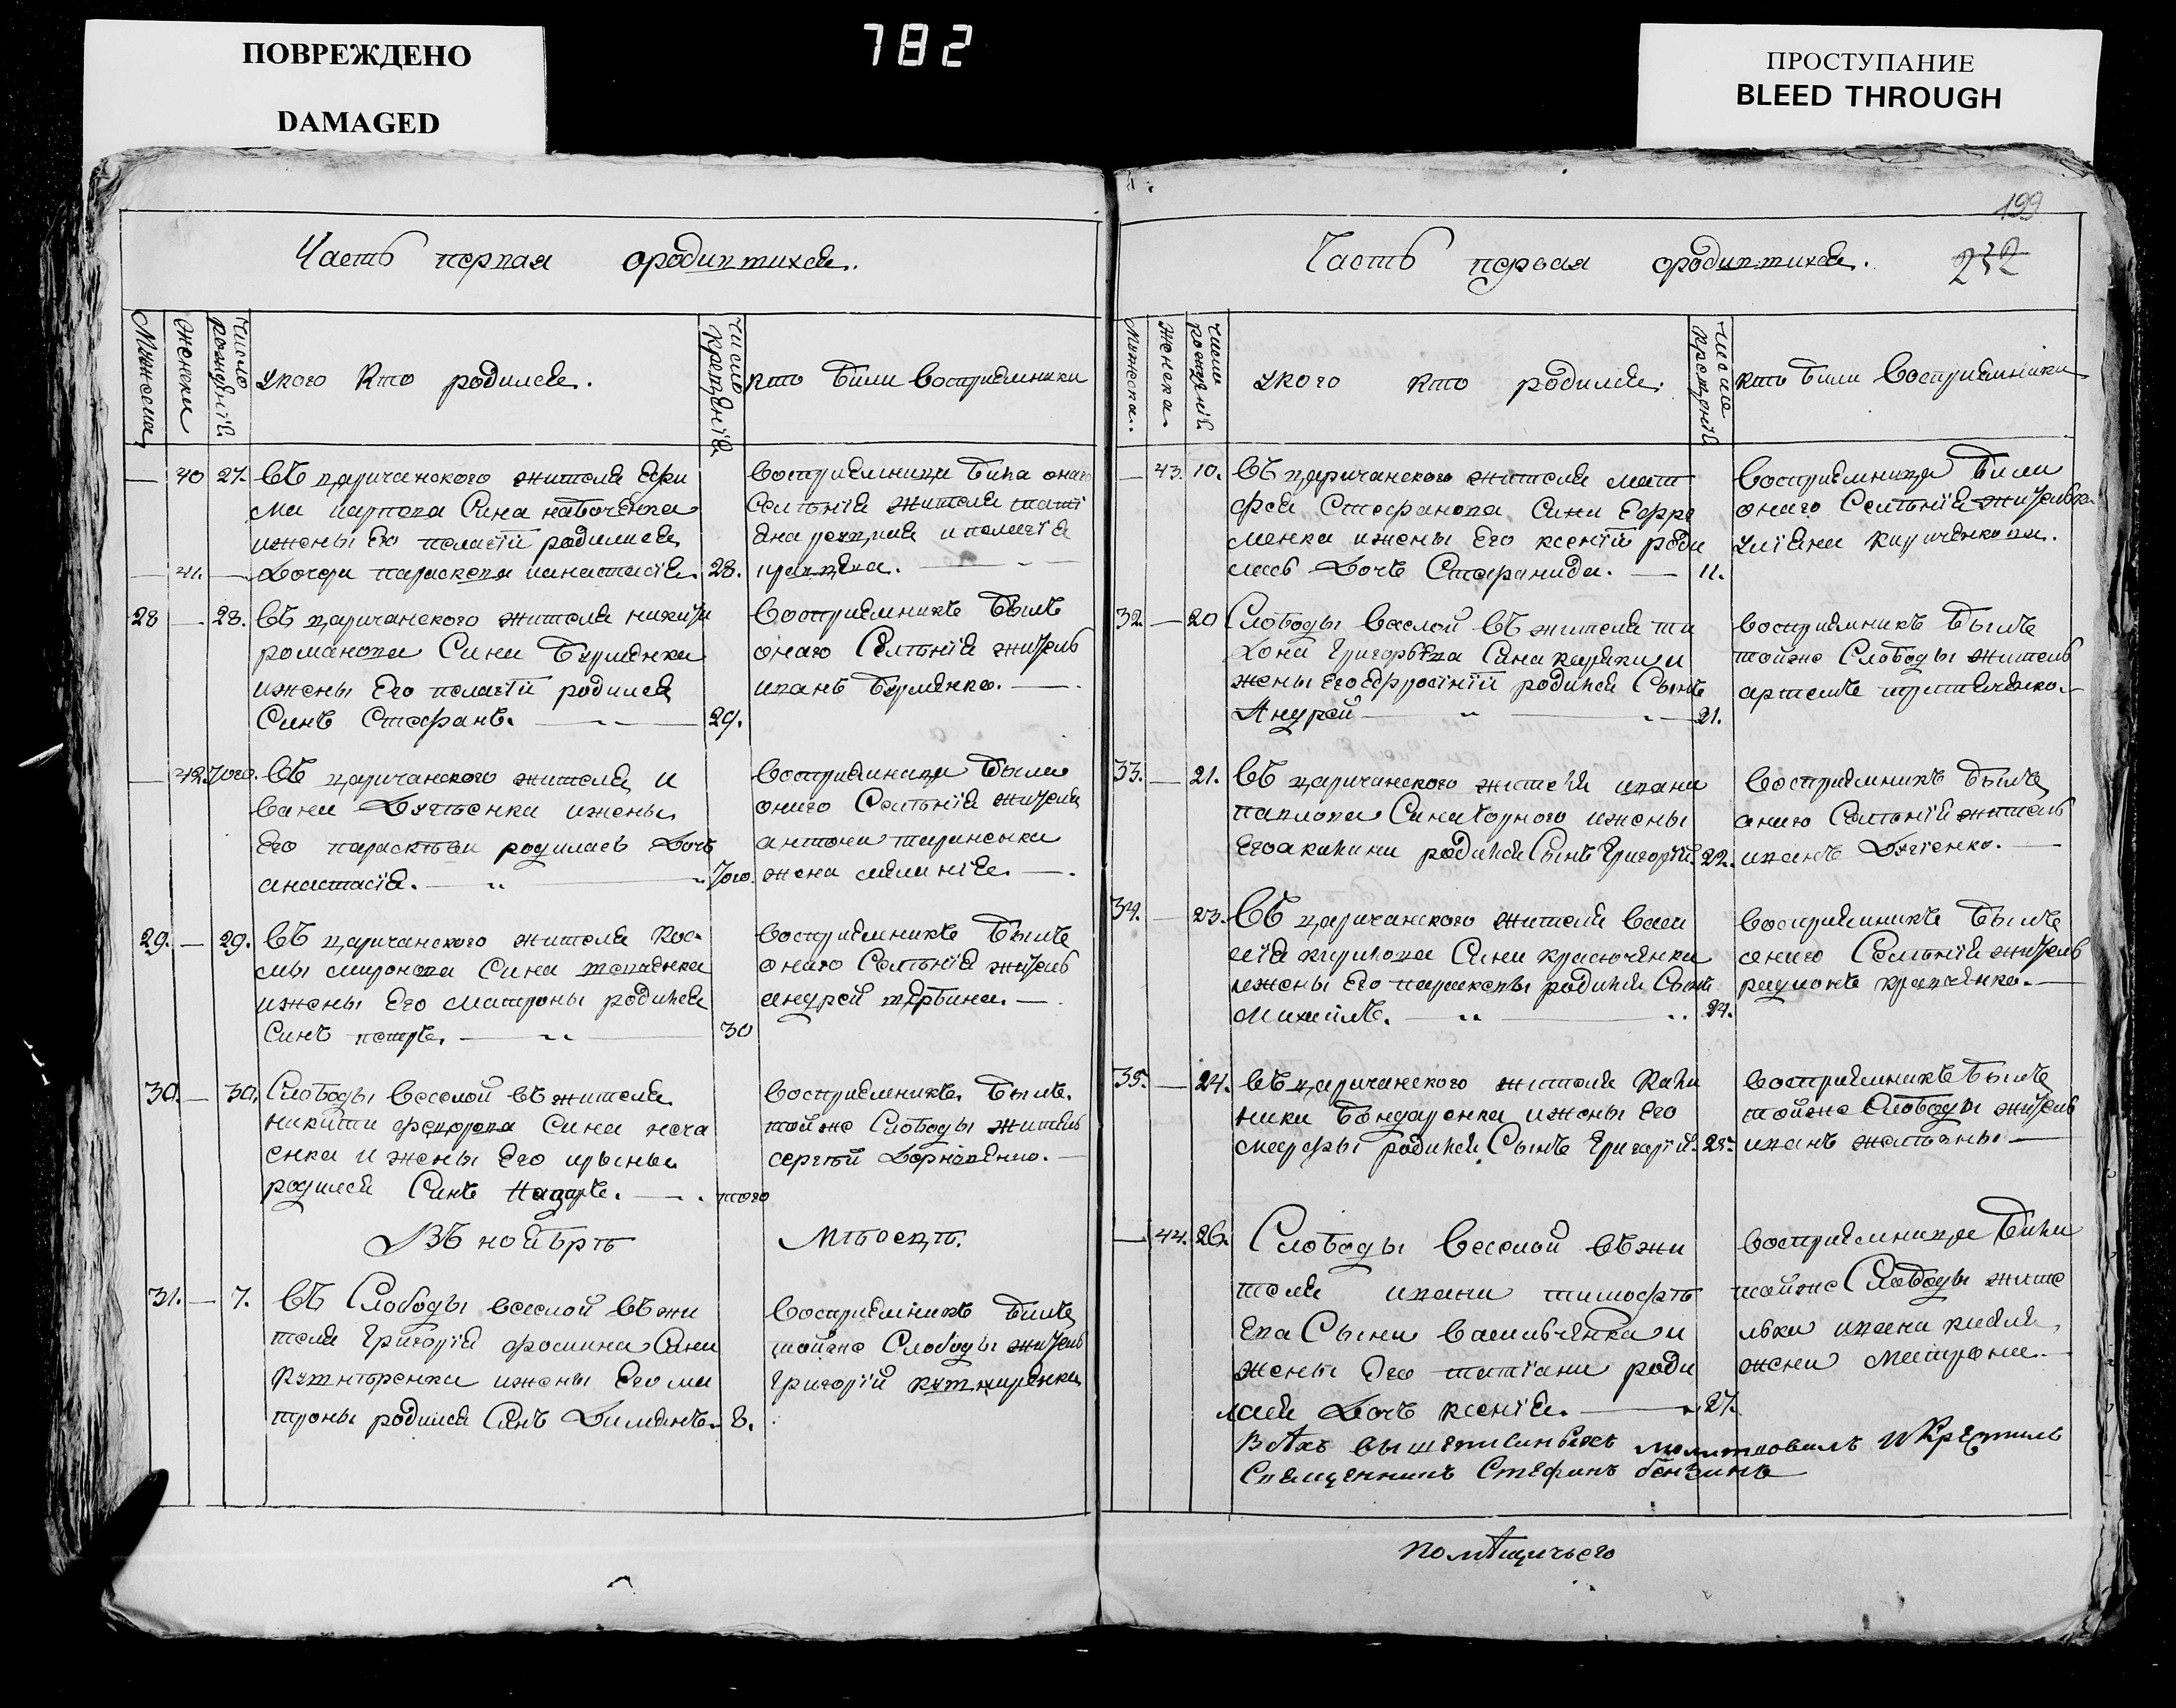 ПОВРЕЖДЕНО
DAMAGED
782
ПРОСТУПАНИЕ
BLEED THROUGH
Часть первая ородившихся.
Мужеска
женска
число рожденій
укого кто родился.
число крещенія
кто были восприемники
— 40 27. въ царичанского жителя ефи
ма карпова сина
ижены его пелагіи родилися
— 41. — дочери параскева ианастасія. 28.
восприемница била онаго
селенія жителя
ипелагія
28 — 28. въ царичанского жителя никиты
романова сина бурлянка
ижены его пелагіи родился
синъ стефанъ. 29.
восприемникъ былъ
онаго селенія житель
иванъ бурлянко.
— 42 того. въ царичанского жителя и
вана ижены
его параскевы родилась дочь
анастасія. того.
восприемница была
онаго селенія жителя
антона тараненка
жена меланія.
29. — 29. въ царичанского жителя кос
мы миронова сина
ижены его матроны родился
синъ петръ. 30
восприемникъ былъ
онаго селенія житель
андрей щербина.
30. — 30. слободы веселой въ жителя
никиты федорова сина неча
енка и жены его ирины
родился синъ назаръ. того
восприемникъ былъ
тойже слободы житель
сергей
Въ ноябрѣ Мѣсецѣ.
31. — 7. въ слободы веселой въ жи
теля григорія фомина сина
ижены его ма
троны родился синъ даміянъ. 8.
восприемникъ билъ
тойже слободы житель
григорій
199
232
Часть первая ородившихся.
Мужеска.
женска
число рожденій
укого кто родился.
число крещеній
кто были восприемники
— 43. 10. въ царичанского жителя мат
фея стефанова сина ефре
менка ижены его ксеніи роди
лась дочь стефанида. — 11.
восприемница были
онаго селенія жителька
уліяна кириченкова.
32. — 20 слободы веселой въ жителя ти
хона григорьева сина и
жены его ефросініи родился сынъ
Андрей 21.
восприемникъ былъ
тойже слободы житель
артемъ
33. — 21. въ царичанского жителя ивана
павлова сина ижены
его акилини родился сынъ григорій 22.
восприемникъ былъ
онаго селенія житель
иванъ
34. — 23. въ царичанского жителя васи
лія кирилова сина красюченка
ижены его параскевы родился сынъ
михаилъ. 24.
восприемникъ былъ
онаго селенія житель
родионъ кравченко.
35. — 24. въ царичанского жителя кали
ника бондаренка ижены его
марфы родился сынъ григорій. 25.
восприемникъ былъ
тойже слободы житель
иванъ
— 44. 26. слободы веселой въ жи
теля ивана тимофѣ
ева сына васильченка и
жены его татіани роди
лася дочъ ксенія. 27.
восприемница били
тойже слободы жите
лька ивана
жена матрона
Всѣхъ вышеписанныхъ молитвовалъ икрестилъ
священникъ стефанъ
помѣщичьего